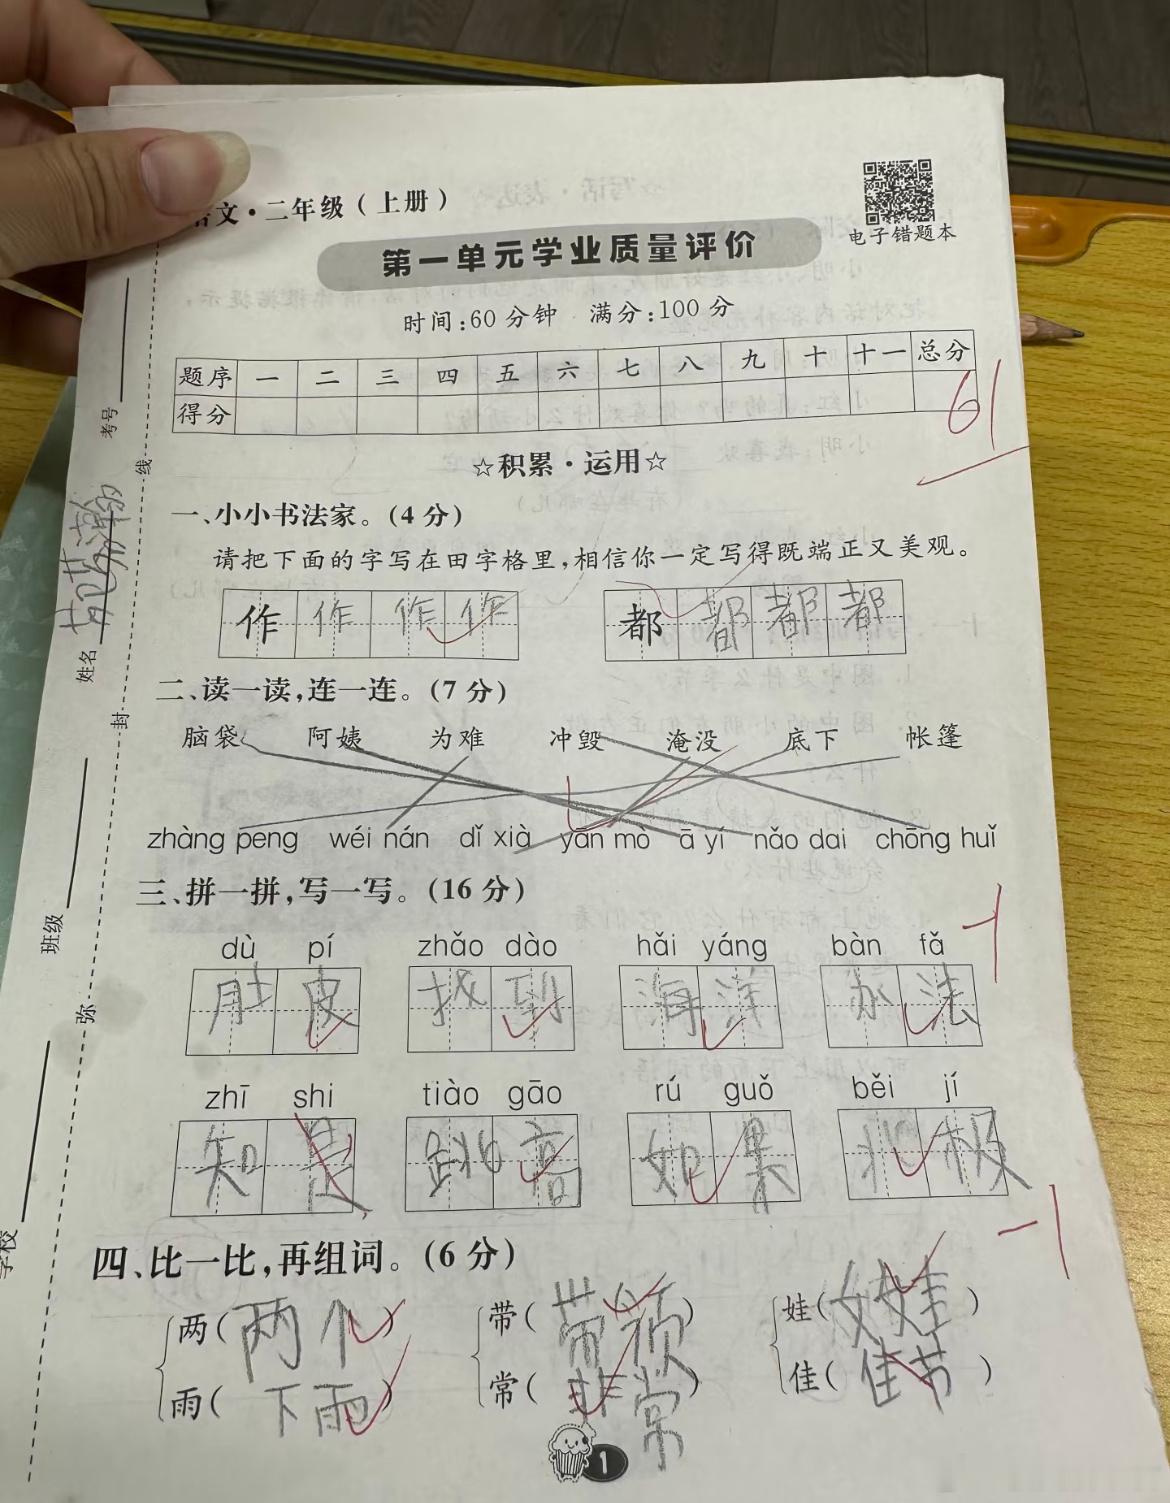 语文·二年级（上册）
电子错题本
第一单元学业质量评价
时间:60分钟 满分:100分
题序 一 二 三 四 五 六 七 八 九 十 十一 总分
得分 61
☆积累·运用☆
一、小小书法家。(4分)
请把下面的字写在田字格里,相信你一定写得既端正又美观。
作 作 作 作 都 都 都 都
二、读一读,连一连。(7分)
脑袋 阿姨 为难 冲毁 淹没 底下 帐篷
zhàng peng wéi nán dǐ xià yān mò ā yí nǎo dai chōng huǐ
三、拼一拼,写一写。(16分)
dù pí zhǎo dào hǎi yáng bàn fǎ
肚皮 找到 海洋 办法
-1
zhī shi tiào gāo rú guǒ běi jí
知是 跳高 如果 北极
-1
四、比一比,再组词。(6分)
两(两个) 带( ) 娃(女娃)
雨(下雨) 常(非常) 佳(佳节)
1
考号
姓名
班级
学校
线
封
弥